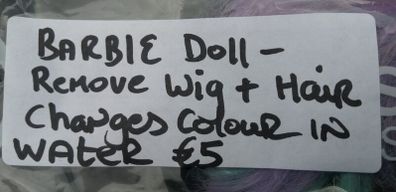 BARBIE Doll –
Remove Wig + Hair
Changes Colour IN
WATER €5